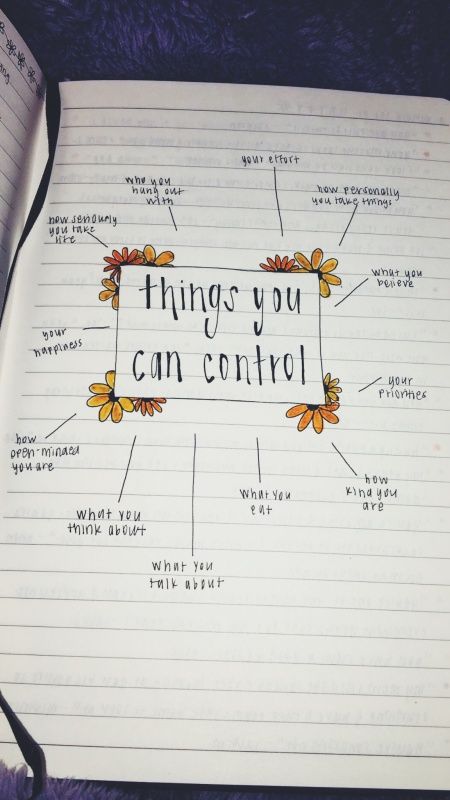 things you
can control
your effort
how personally
you take things
what you
believe
your
priorities
how
kind you
are
what you
eat
what you
talk about
what you
think about
how
open-minded
you are
your
happiness
how seriously
you take
life
who you
hung out
with